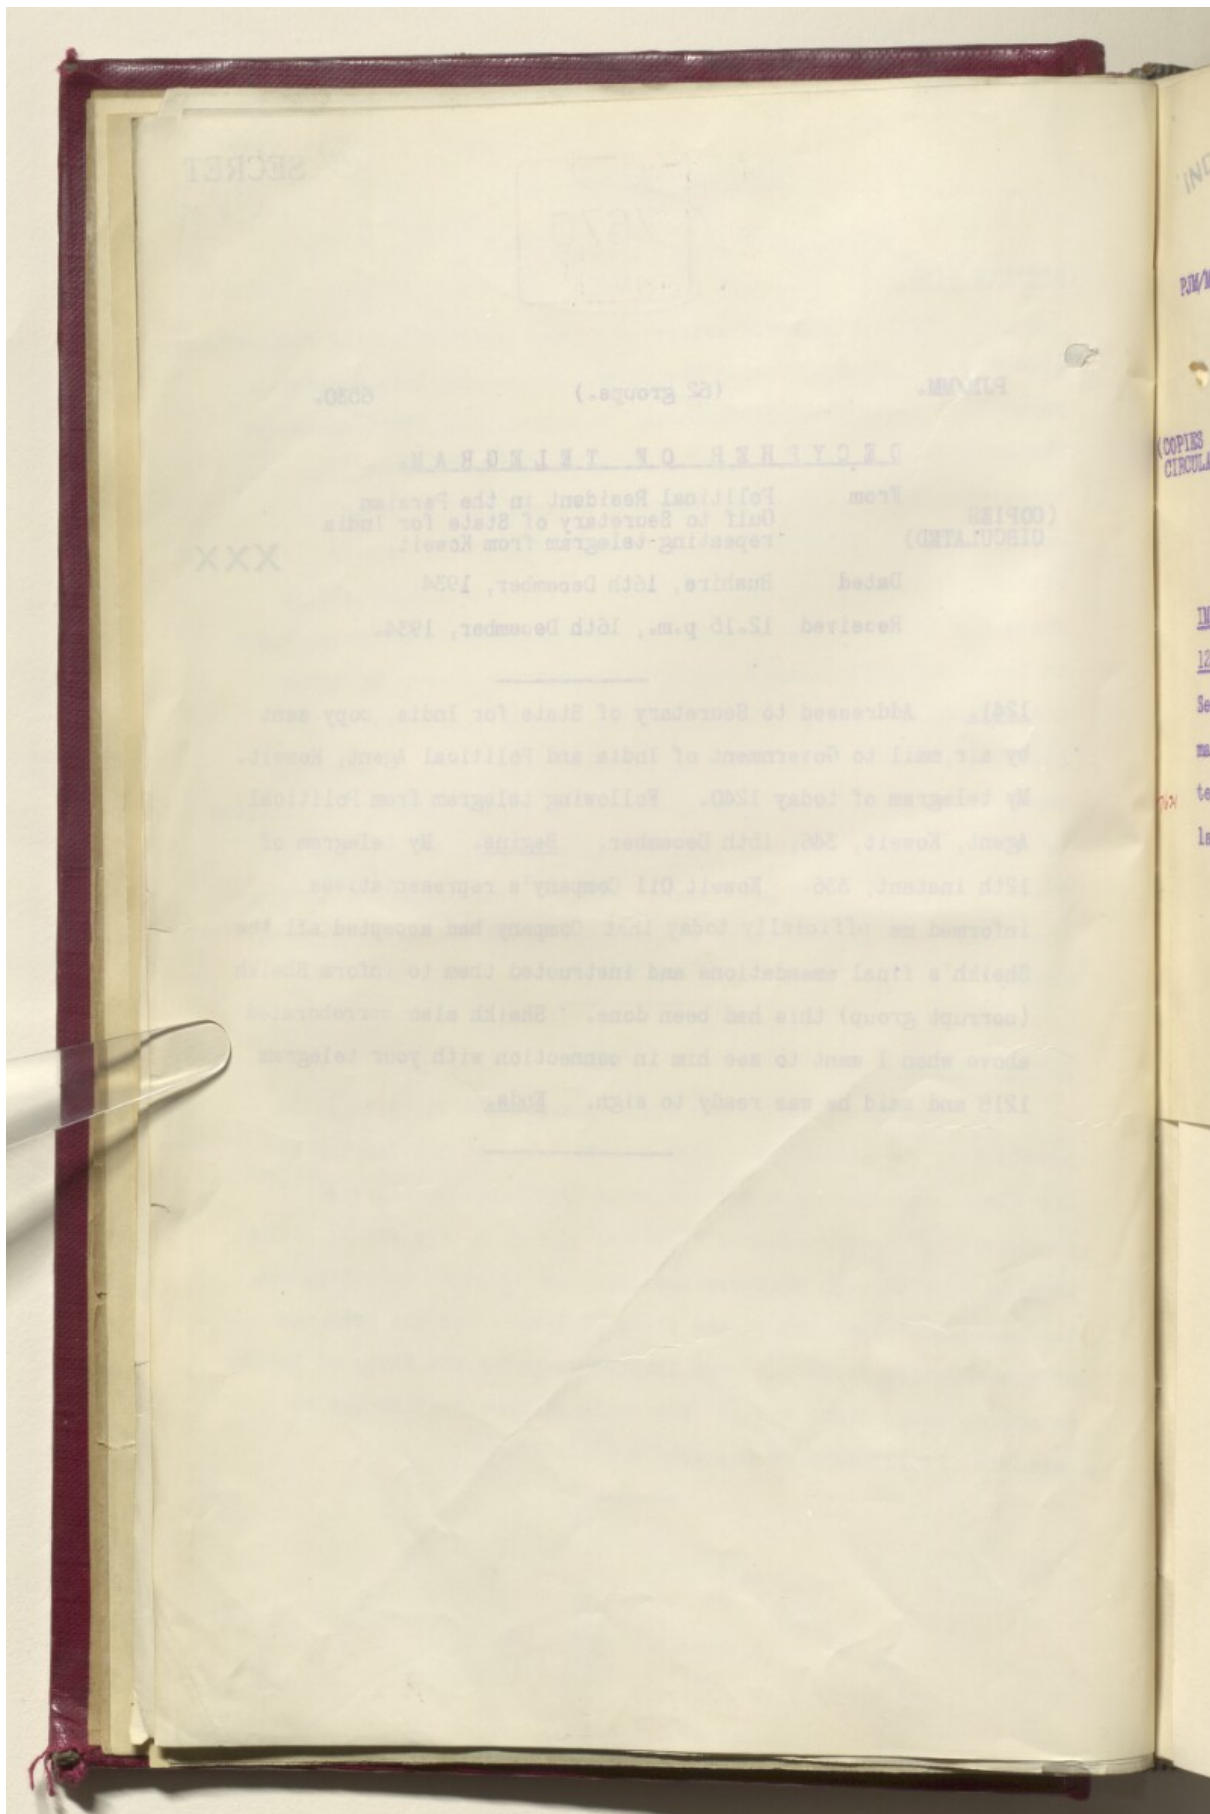 SECRET
(62 groups.) 6530.
DECYPHER OF TELEGRAM.
(COPIES
CIRCULATED)
From Political Resident in the Persian
Gulf to Secretary of State for India
repeating telegram from Koweit.
XXX
Dated Bushire, 16th December, 1934
Received 12.15 p.m., 16th December, 1934.
1241. Addressed to Secretary of State for India, copy sent
by air mail to Government of India and Political Agent, Koweit.
My telegram of today 1240. Following telegram from Political
Agent, Koweit, 346, 15th December. Begins. My telegram of
12th instant, 336. Koweit Oil Company's representatives
informed me officially today that Company had accepted all the
Sheikh's final emendations and instructed them to inform Sheikh
(corrupt group) this had been done. Sheikh also corroborated
above when I went to see him in connection with your telegram
1218 and said he was ready to sign. Ends.
IND
PJM/M
(COPIES
CIRCULA
IM
12
Se
ma
te
la